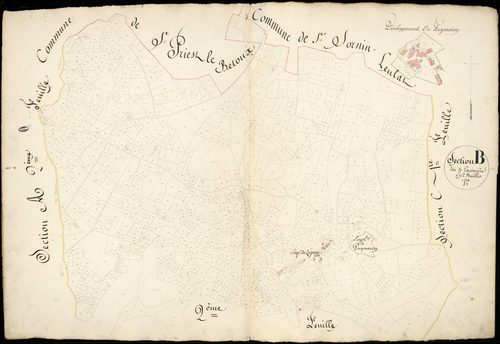 Commune de St Priest le Betoux
Commune de St Sornin
Leulac
Développement de Puymarou
Section A 2ème Feuille
Section C 1re Feuille
Section B
en 2 Feuilles
1re
2ème Feuille